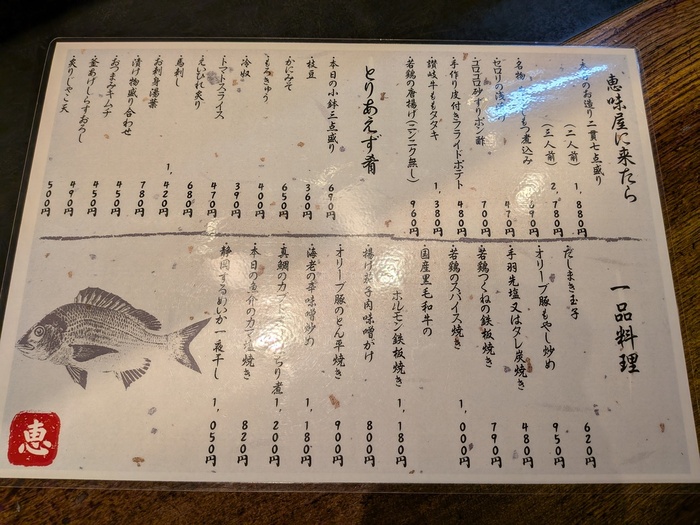 恵味屋に来たら
日のお造り二貫七点盛り
(二人前) 1,880円
(三人前) 2,780円
・名物 もつ煮込み 90円
・セロリの浅漬け 470円
・コロコロ砂ずりポン酢 700円
・手作り皮付きフライドポテト 480円
・讃岐牛ももタタキ 1,380円
・若鶏の唐揚げ(ニンニク無し) 960円
とりあえず肴
・本日の小鉢三点盛り 690円
・枝豆 360円
・かにみそ 650円
・もろきゅう 400円
・冷奴 390円
・トマトスライス 470円
・えいひれ炙り 680円
・馬刺し 1,420円
・お刺身湯葉 780円
・漬け物盛り合わせ 450円
・おつまみキムチ 450円
・釜あげしらすおろし 490円
・炙りじゃこ天 500円
一品料理
・だしまき玉子 620円
・オリーブ豚もやし炒め 950円
・手羽先塩又はタレ炭焼き 480円
・若鶏つくねの鉄板焼き 790円
・若鶏のスパイス焼き 1,000円
・国産黒毛和牛の
ホルモン鉄板焼き 1,180円
・揚げ茄子肉味噌がけ 800円
・オリーブ豚のとん平焼き 900円
・海老の辛味噌炒め 1,180円
・真鯛のカブト り煮 1,200円
・本日の魚介のカマ塩焼き 820円
・静岡するめいか一夜干し 1,050円
恵